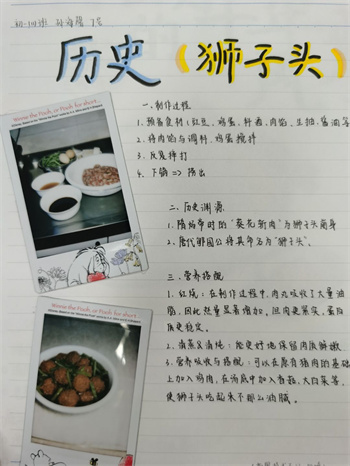 历史(狮子头)
Winnie the Pooh, or Pooh for short.
一、制作过程
1. 预备食材(豆、鸡蛋、料酒、肉馅、生抽、酱油等
2. 将肉馅与调料、鸡蛋搅拌
3. 反复摔打
4. 下锅 => 捞出
二、历史渊源
1. 隋炀帝时的"葵花斩肉"为狮子头前身
2. 唐代郇国公将其命名为"狮子头"。
三、营养搭配
1. 红烧:在制作过程中,肉丸吸收了大量油
脂,因此热量显著增加,但肉更紧实,
历史更悠久。
2. 清蒸及清炖:能更好地保留肉质鲜嫩。
3. 营养吸收与搭配:可以在原有猪肉的基础
上加入鸡肉,在汤底中加入香菇、大白菜等,
使狮子头吃起来不那么油腻。
Winnie the Pooh, or Pooh for short.